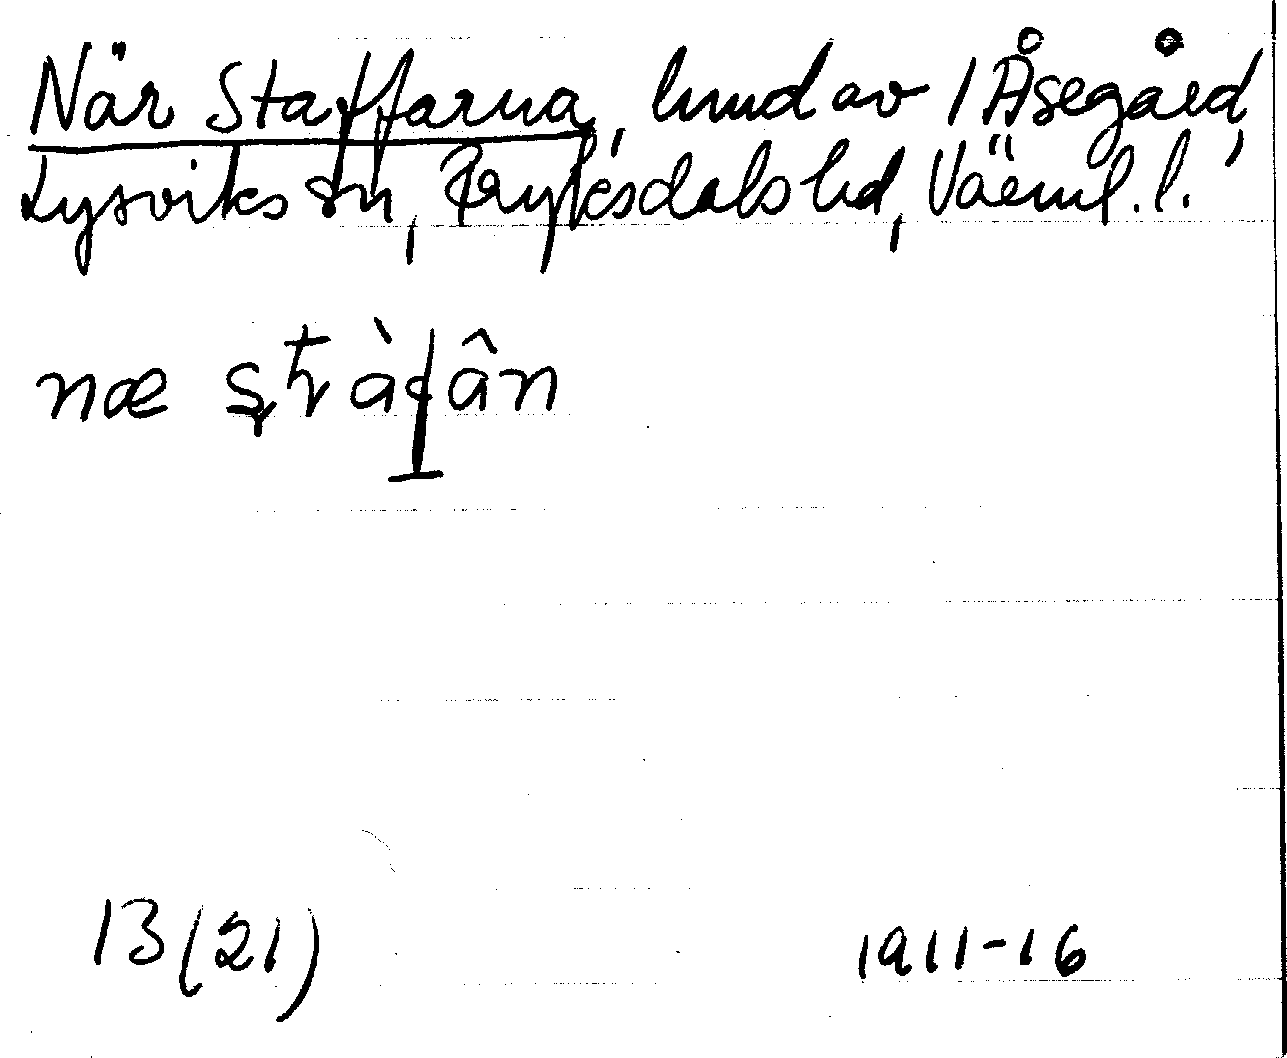 När Staffarna, lund av 1 Åsegård,
Lysviks sn, Fryksdals hd, Värml. l.
næ
13 (21) 1911-16